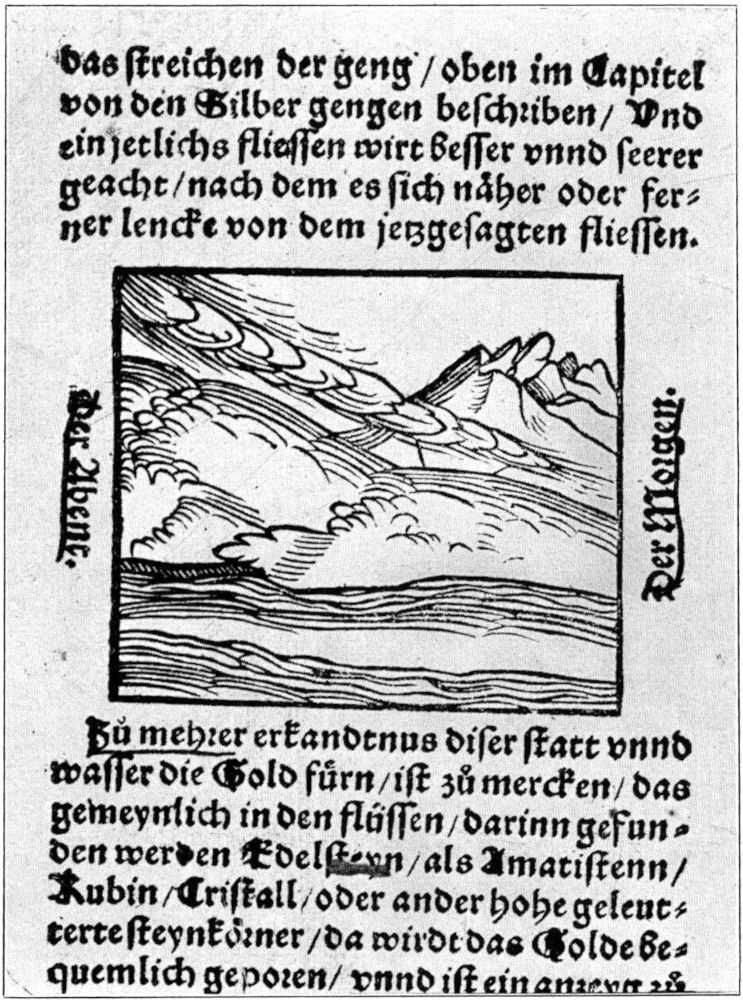 das streichen der geng / oben im Capitel
von den Silber gengen beschriben / Vnd
ein jetlichs fliessen wirt besser vnnd seerer
geacht / nach dem es sich näher oder fer⸗
ner lencke von dem jetzgesagten fliessen.
Der Abent.
Der Morgen.
Zů mehrer erkandtnus diser statt vnnd
wasser die Gold fürn / ist zů mercken / das
gemeynlich in den flüssen / darinn gefun⸗
den werden Edelsteyn / als Amatistenn /
Rubin / Cristall / oder ander hohe geleut⸗
terte steynkörner / da wirdt das Golde be⸗
quemlich geporen / vnnd ist ein anzeyg zů